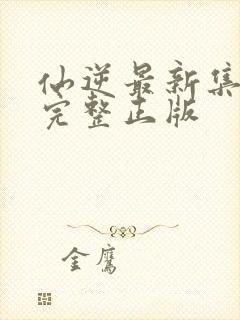 仙逆最新集
完整正版
金鹰